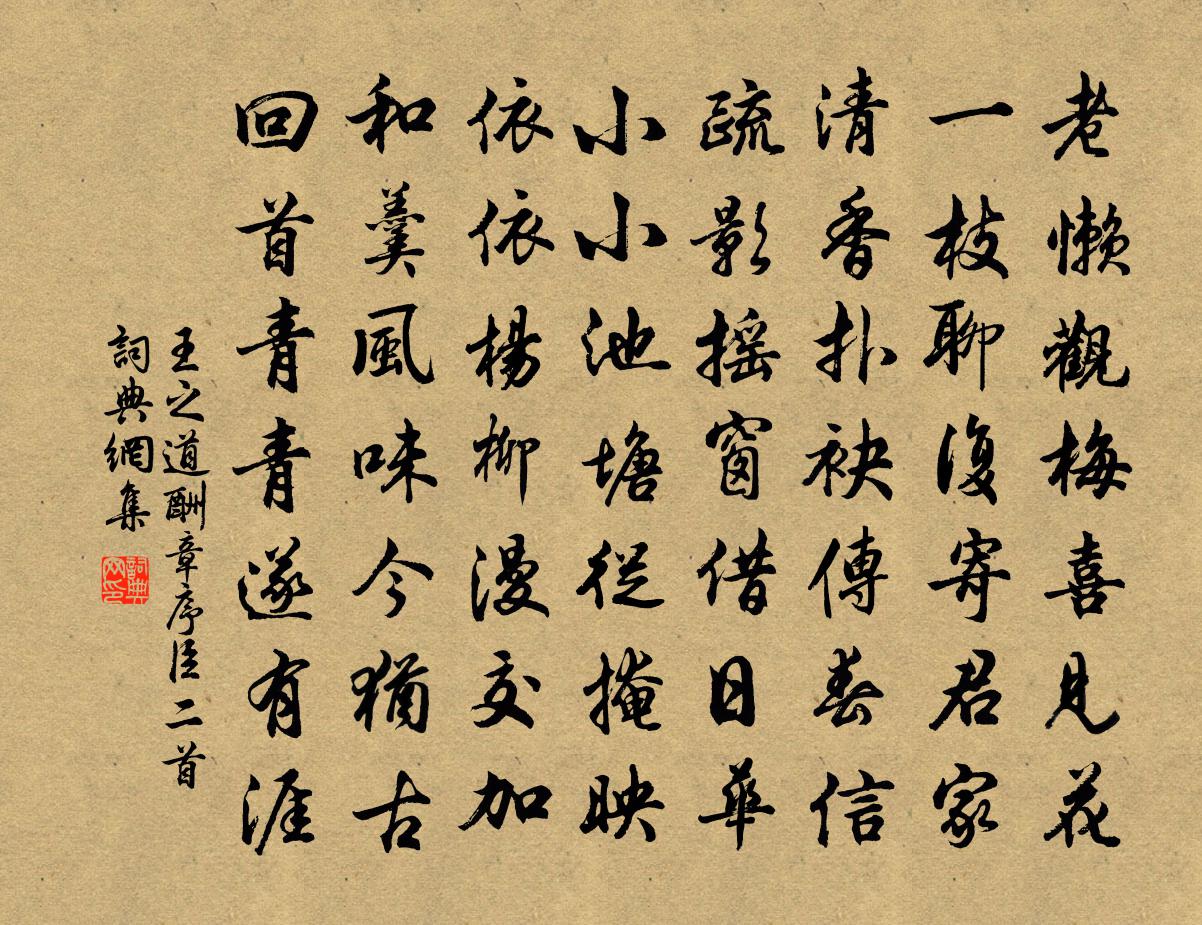 老懶觀梅喜見花
一枝聊復寄君家
清香扑袂傳春信
疏影摇窗借日華
小小池塘從掩映
依依楊柳漫交加
和羹風味今猶古
回首青青遂有涯
王之道酬章序臣二首
詞典網集
詞典網印